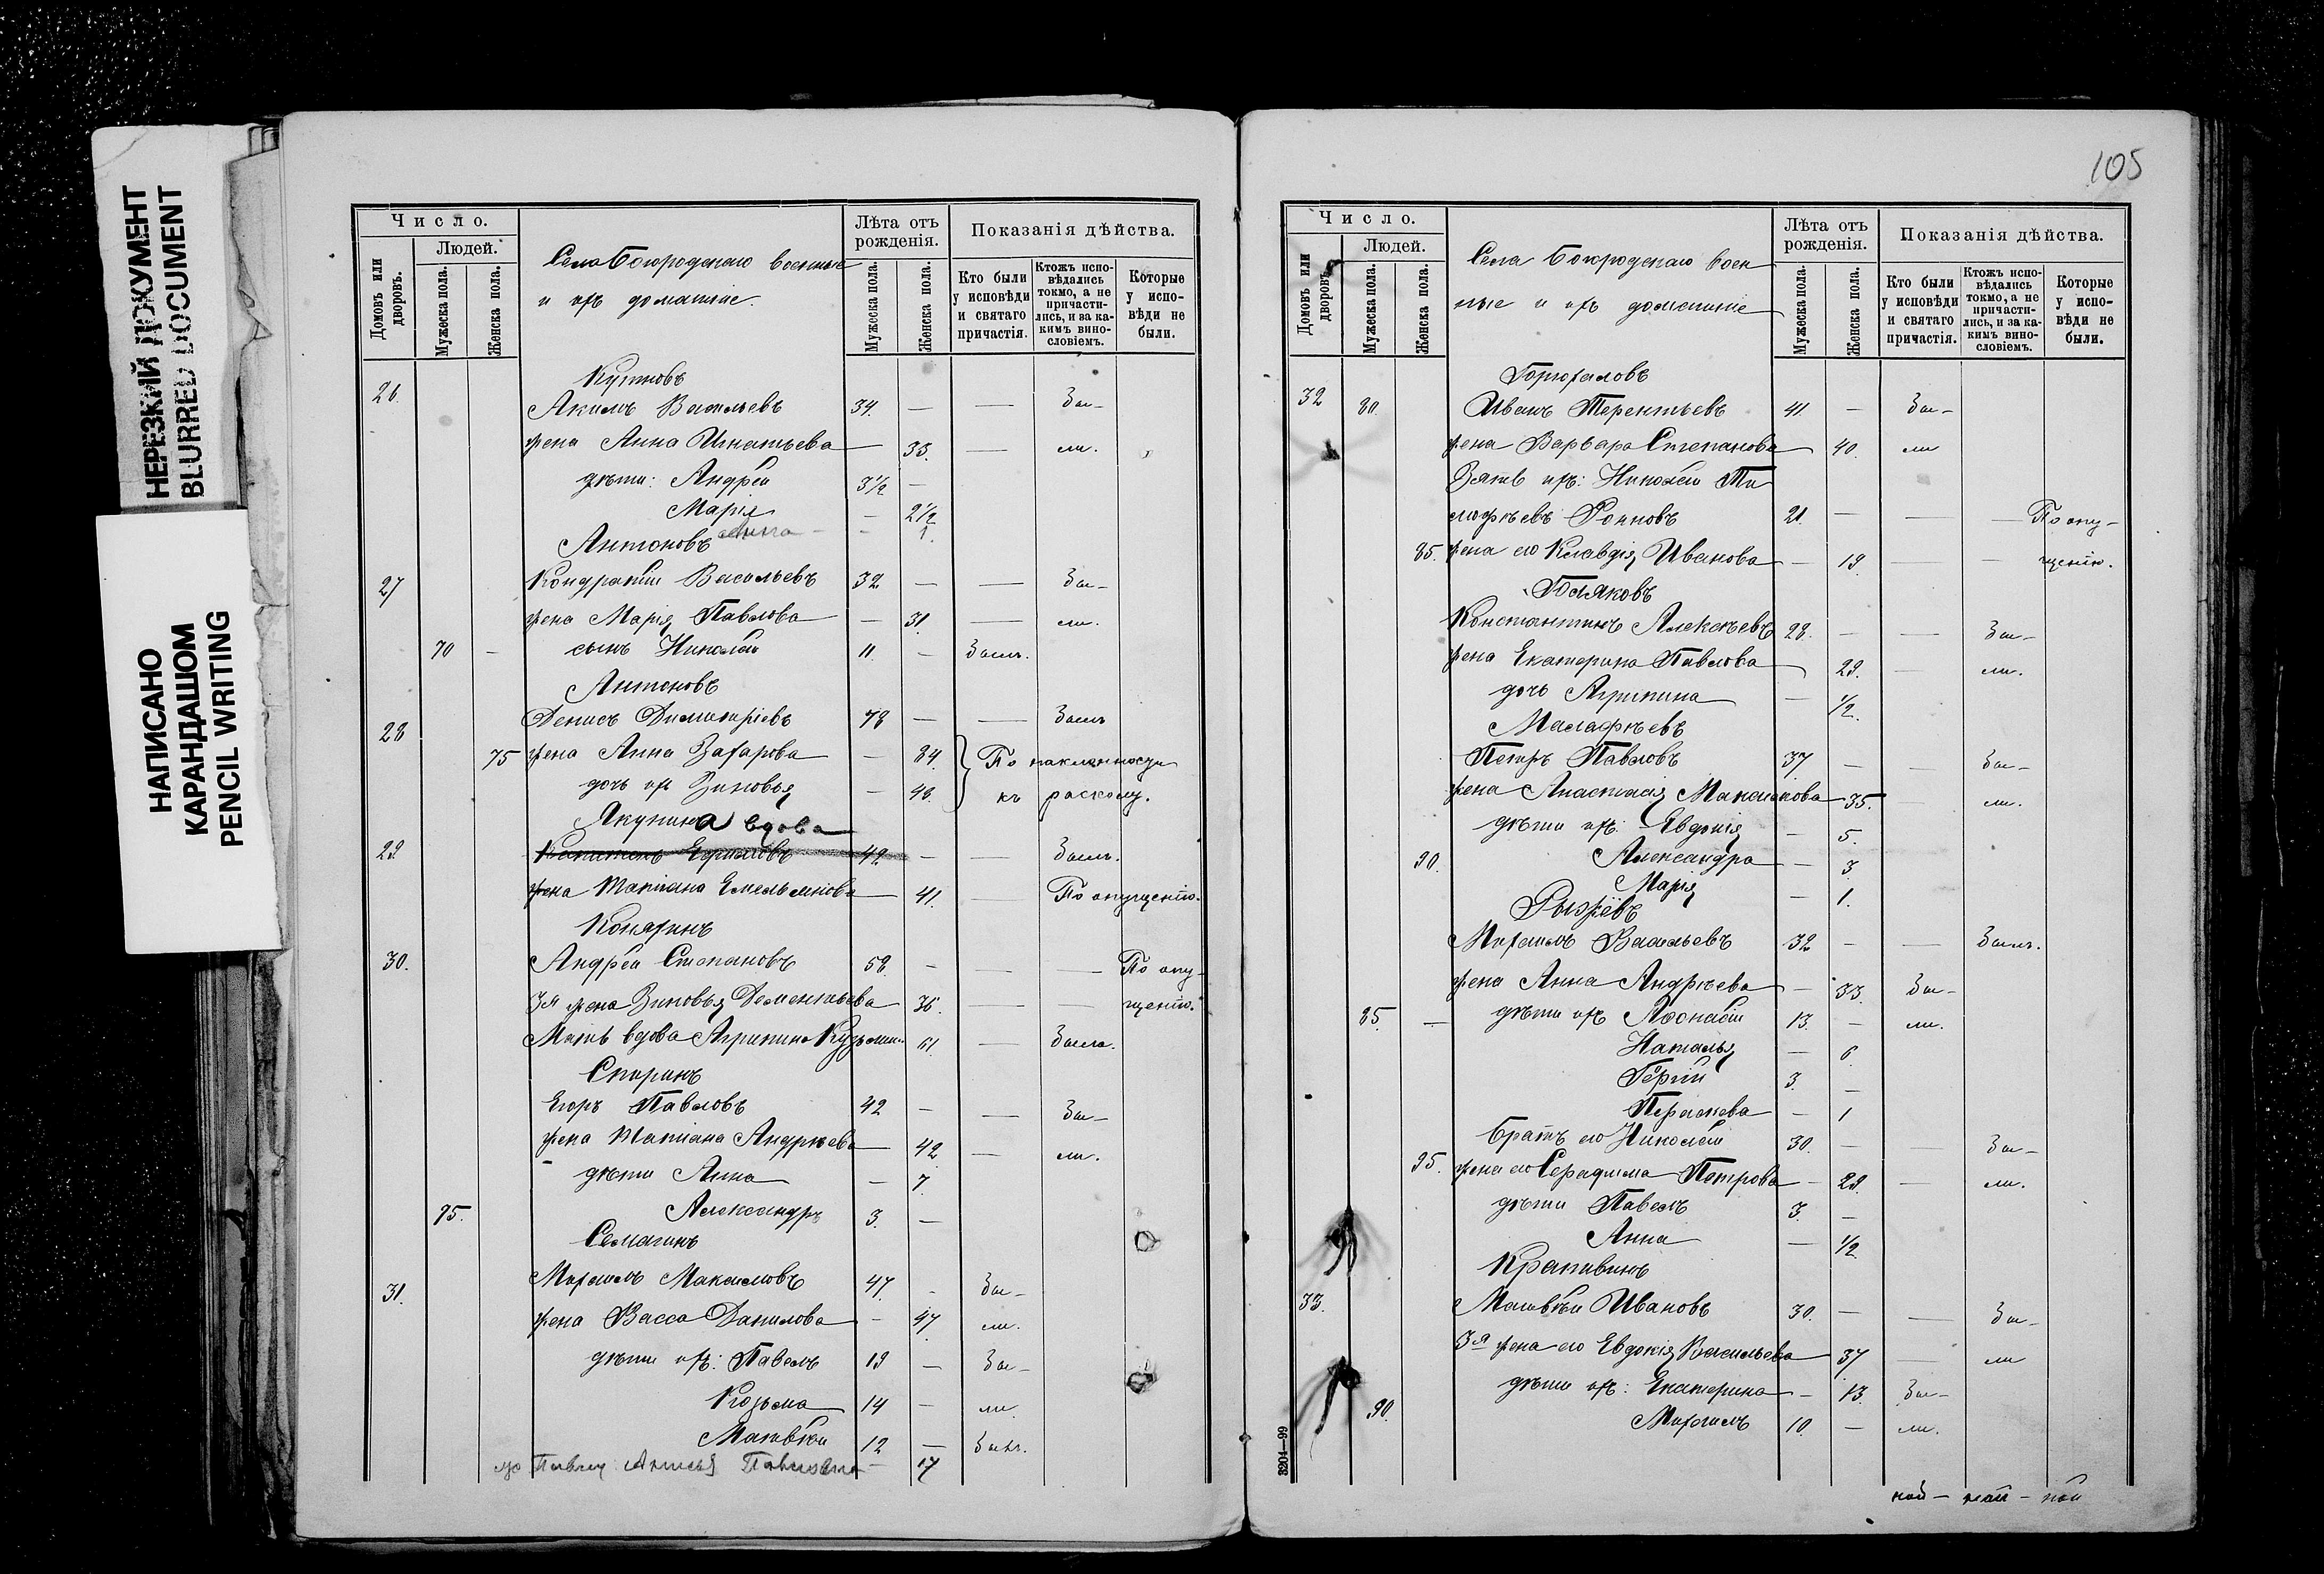 НЕРЕЗКИЙ ДОКУМЕНТ
BLURRED DOCUMENT
НАПИСАНО
КАРАНДАШОМ
PENCIL WRITING
Число.
Людей.
Домовъ или дворовъ.
Мужеска пола.
Женска пола.
Села Богородскаго военные
и ихъ домашніе.
Лѣта отъ рожденія.
Мужеска пола.
Женска пола.
Показанія дѣйства.
Кто были у исповѣди и святаго причастія.
Ктожъ исповѣдались токмо, а не причастились, и за какимъ винословіемъ.
Которые у исповѣди не были.
26.
Акимъ Васильевъ 34. — — Бы-
жена Анна Игнатьева 33. — ли.
дѣти: Андрей 3½ —
Марія — 2½
Анна — — 1.
Антоновъ
27 Кондратій Васильевъ 32 — — Бы-
жена Марія Павлова — 31. — ли.
70 — сынъ Николай 11. — Былъ.
Антоновъ
28 Денисъ Димитріевъ 78 — — Былъ
75 жена Анна Захарова — 84. По наклонности
дочь ихъ Зиновья — 48. къ расколу.
Якунина вдова
29. Капитонъ Ефимовъ 42. — — Былъ.
жена Татіана Емельянова 41. — По опущенію.
Конягинъ
30. Андрей Степановъ 58. — — — По опу-
3я жена Зиновья Дементьева 36. — — щенію.
Мать вдова Агрипина Кузьмин. 61. — Была.
Спиринъ
Егоръ Павловъ 42 — — Бы-
жена Татіана Андреева 42. — ли.
дѣти Анна — 7.
75. Александръ 3. —
Семагинъ
31. Михаилъ Максимовъ 47. - Бы-
жена Васса Данилова - 47. ли.
дѣти ихъ: Павелъ 19 — Бы-
Козьма 14 — ли.
Матвѣй 12 — Былъ.
Павловна — 17
105
Число.
Людей.
Домовъ или дворовъ.
Мужеска пола.
Женска пола.
Села Богородскаго воен
ные и ихъ домашніе
Лѣта отъ рожденія.
Мужеска пола.
Женска пола.
Показанія дѣйства.
Кто были у исповѣди и святаго причастія.
Ктожъ исповѣдались токмо, а не причастились, и за какимъ винословіемъ.
Которые у исповѣди не были.
32 80. Иванъ Терентьевъ 41. — Бы-
жена Варвара Степанова 40. ли
Зять ихъ: Николай Ти
мофѣевъ 21. — — — По опу-
85. жена его Клавдія Иванова — 19. — — щенію.
Поляковъ
Константинъ Алексѣевъ 28. — — Бы-
жена Екатерина Павлова 29. — ли.
дочь Агрипина — ½.
Малафѣевъ
Петръ Павловъ 37. — — Бы-
жена Анастасія Максимова 35. — ли.
дѣти ихъ: Евдокія — 5.
90. Александра — 3.
Марія — 1.
Рыжёвъ
Михаилъ Васильевъ 32 — — Былъ.
жена Анна Андреева — 33. Бы-
85. — дѣти ихъ Аѳанасій 13. — ли.
Наталья — 6
Сергій 3. —
Параскева — 1
братъ его Николай 30. — Бы-
95. жена его Серафима Петрова — 29. — ли.
дѣти Павелъ 3. —
Анна — ½
Крапивинъ
33. Матвѣй Ивановъ 30. — — Бы-
3я жена его Евдокія Васильева 37 — ли
дѣти ихъ: Екатерина — 13. Бы-
90. Михаилъ 10. — ли.
3204—99